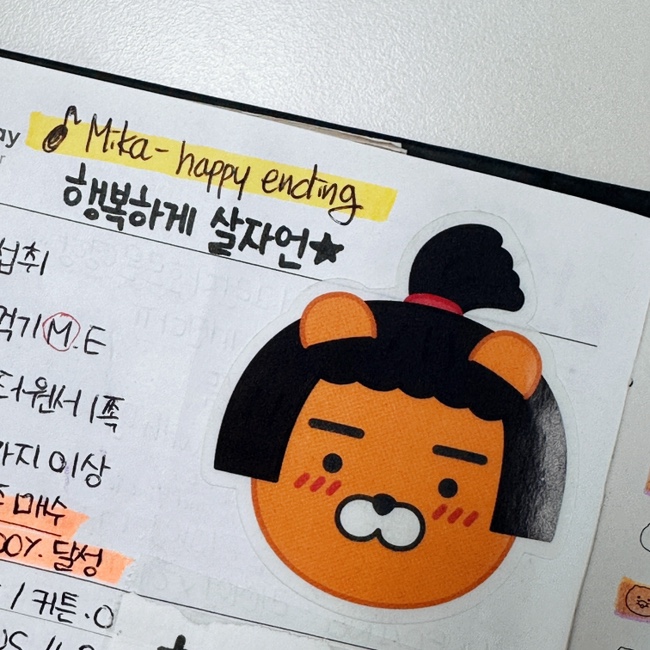 ♪ Mika - happy ending
행복하게 살자언★
섭취
먹기 M.E
원서 1쪽
가지 이상
매수
달성
1 커튼.O